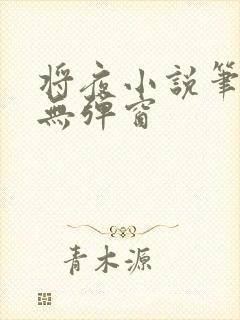 將夜小說筆
無彈窗
青木源